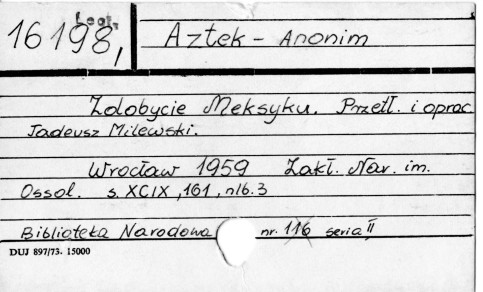 Leg.
16198,
Aztek - Anonim
Zdobycie Meksyku. Przetł. i oprac
Tadeusz Milewski.
Wrocław 1959 Zakł. Nar. im.
Ossol. s. XCIX, 161, nlb. 3
Biblioteka Narodowa nr. 116 seria II,
DUJ 897/73. 15000